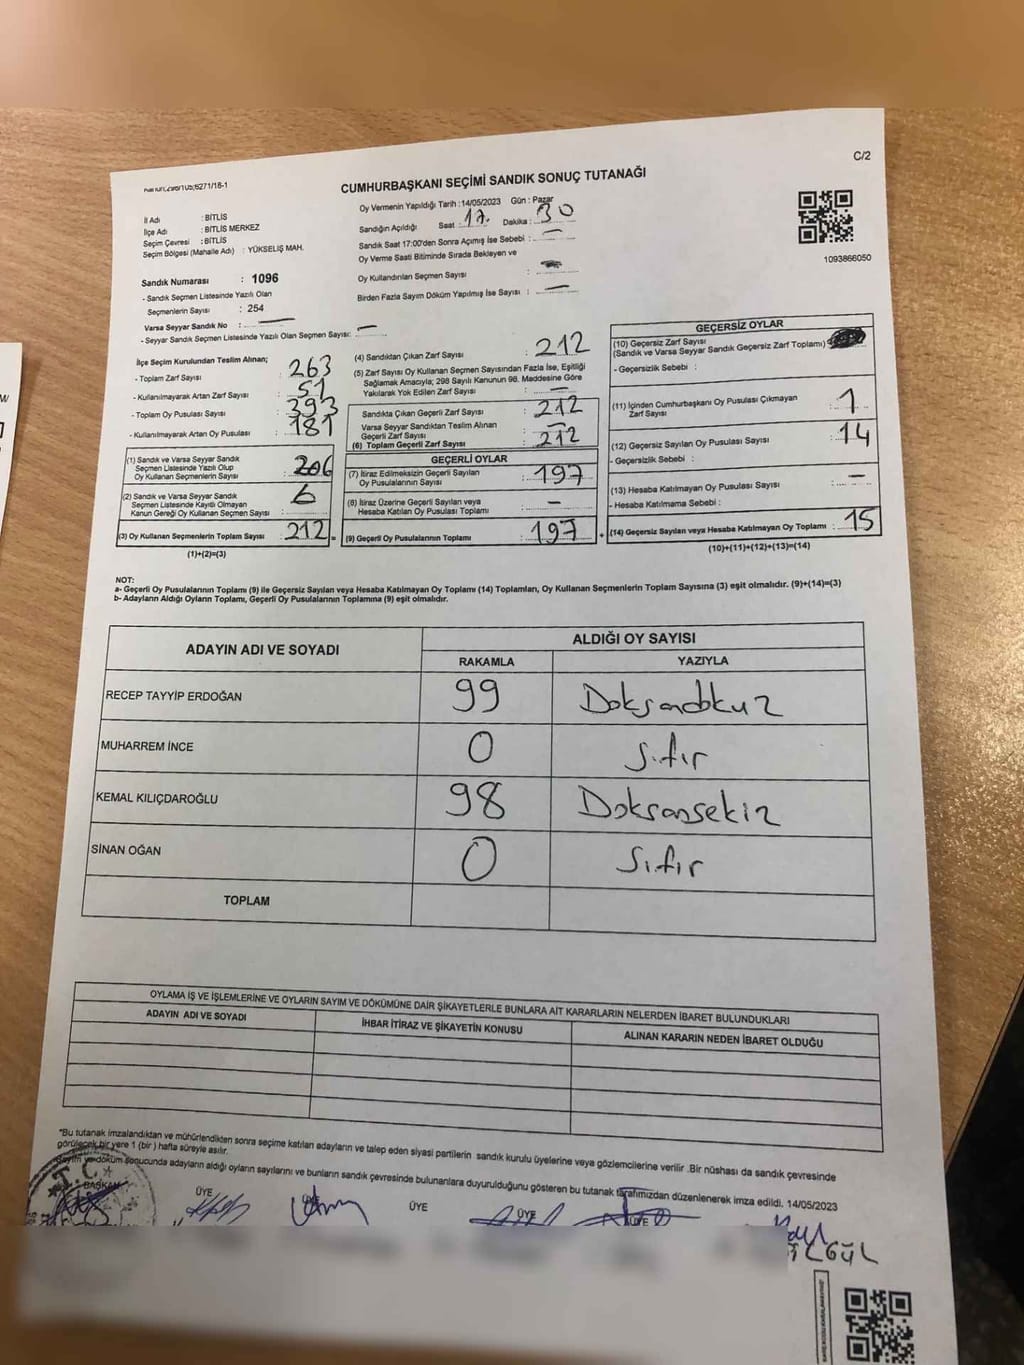 C/2
CUMHURBAŞKANI SEÇİMİ SANDIK SONUÇ TUTANAĞI
İl Adı : BİTLİS
İlçe Adı : BİTLİS MERKEZ
Seçim Çevresi : BİTLİS
Seçim Bölgesi (Mahalle Adı) : YÜKSELİŞ MAH.
Sandık Numarası : 1096
- Sandık Seçmen Listesinde Yazılı Olan
Seçmenlerin Sayısı : 254
Varsa Seyyar Sandık No : —
- Seyyar Sandık Seçmen Listesinde Yazılı Olan Seçmen Sayısı: —
Oy Vermenin Yapıldığı Tarih :14/05/2023 Gün : Pazar
Sandığın Açıldığı Saat : 17 Dakika : 30
Sandık Saat 17:00'den Sonra Açımış İse Sebebi : —
Oy Verme Saati Bitiminde Sırada Bekleyen ve
Oy Kullandırılan Seçmen Sayısı : —
Birden Fazla Sayım Döküm Yapılmış İse Sayısı : —
1093866050
İlçe Seçim Kurulundan Teslim Alınan;
- Toplam Zarf Sayısı : 263
- Kullanılmayarak Artan Zarf Sayısı : 51
- Toplam Oy Pusulası Sayısı : 393
- Kullanılmayarak Artan Oy Pusulası : 181
(1) Sandık ve Varsa Seyyar Sandık
Seçmen Listesinde Yazılı Olup
Oy Kullanan Seçmenlerin Sayısı : 206
(2) Sandık ve Varsa Seyyar Sandık
Seçmen Listesinde Kayıtlı Olmayan
Kanun Gereği Oy Kullanan Seçmen Sayısı : 6
(3) Oy Kullanan Seçmenlerin Toplam Sayısı : 212
(1)+(2)=(3)
(4) Sandıktan Çıkan Zarf Sayısı : 212
(5) Zarf Sayısı Oy Kullanan Seçmen Sayısından Fazla İse, Eşitliği
Sağlamak Amacıyla; 298 Sayılı Kanunun 98. Maddesine Göre
Yakılarak Yok Edilen Zarf Sayısı : —
Sandıkta Çıkan Geçerli Zarf Sayısı : 212
Varsa Seyyar Sandıktan Teslim Alınan
Geçerli Zarf Sayısı : —
(6) Toplam Geçerli Zarf Sayısı : 212
GEÇERLİ OYLAR
(7) İtiraz Edilmeksizin Geçerli Sayılan
Oy Pusulalarının Sayısı : 197
(8) İtiraz Üzerine Geçerli Sayılan veya
Hesaba Katılan Oy Pusulası Toplamı : —
(9) Geçerli Oy Pusulalarının Toplamı : 197
GEÇERSİZ OYLAR
(10) Geçersiz Zarf Sayısı :
(Sandık ve Varsa Seyyar Sandık Geçersiz Zarf Toplamı)
- Geçersizlik Sebebi :
(11) İçinden Cumhurbaşkanı Oy Pusulası Çıkmayan
Zarf Sayısı : 1
(12) Geçersiz Sayılan Oy Pusulası Sayısı : 14
- Geçersizlik Sebebi :
(13) Hesaba Katılmayan Oy Pusulası Sayısı : —
- Hesaba Katılmama Sebebi :
(14) Geçersiz Sayılan veya Hesaba Katılmayan Oy Toplamı : 15
(10)+(11)+(12)+(13)=(14)
NOT:
a- Geçerli Oy Pusulalarının Toplamı (9) ile Geçersiz Sayılan veya Hesaba Katılmayan Oy Toplamı (14) Toplamları, Oy Kullanan Seçmenlerin Toplam Sayısına (3) eşit olmalıdır. (9)+(14)=(3)
b- Adayların Aldığı Oyların Toplamı, Geçerli Oy Pusulalarının Toplamına (9) eşit olmalıdır.
ADAYIN ADI VE SOYADI ALDIĞI OY SAYISI
RAKAMLA YAZIYLA
RECEP TAYYİP ERDOĞAN 99 Doksandokuz
MUHARREM İNCE 0 Sıfır
KEMAL KILIÇDAROĞLU 98 Doksansekiz
SİNAN OĞAN 0 Sıfır
TOPLAM
OYLAMA İŞ VE İŞLEMLERİNE VE OYLARIN SAYIM VE DÖKÜMÜNE DAİR ŞİKAYETLERLE BUNLARA AİT KARARLARIN NELERDEN İBARET BULUNDUKLARI
ADAYIN ADI VE SOYADI İHBAR İTİRAZ VE ŞİKAYETİN KONUSU ALINAN KARARIN NEDEN İBARET OLDUĞU
*Bu tutanak imzalandıktan ve mühürlendikten sonra seçime katılan adayların ve talep eden siyasi partilerin sandık kurulu üyelerine veya gözlemcilerine verilir .Bir nüshası da sandık çevresinde
görülecek bir yere 1 (bir ) hafta süreyle asılır.
döküm sonucunda adayların aldığı oyların sayılarını ve bunların sandık çevresinde bulunanlara duyurulduğunu gösteren bu tutanak tarafımızdan düzenlenerek imza edildi. 14/05/2023
T.C.
BAŞKAN ÜYE ÜYE ÜYE ÜYE ÜYE